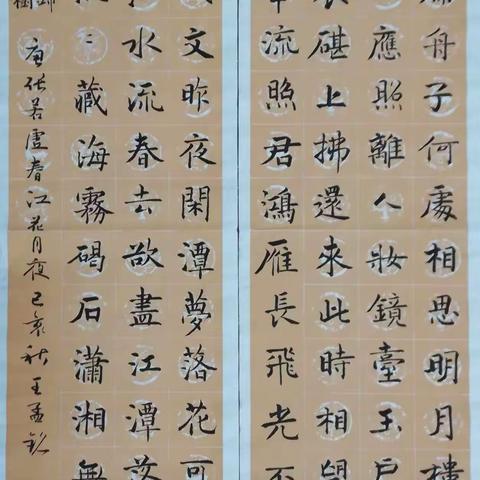 舟子何處相思明月樓
應照離人妝鏡臺玉戶
碪上拂還來此時相望
流照君鴻雁長飛光不
文昨夜閑潭夢落花可
水流春去欲盡江潭落
藏海霧碣石瀟湘無
唐張若虛春江花月夜己亥秋王孟